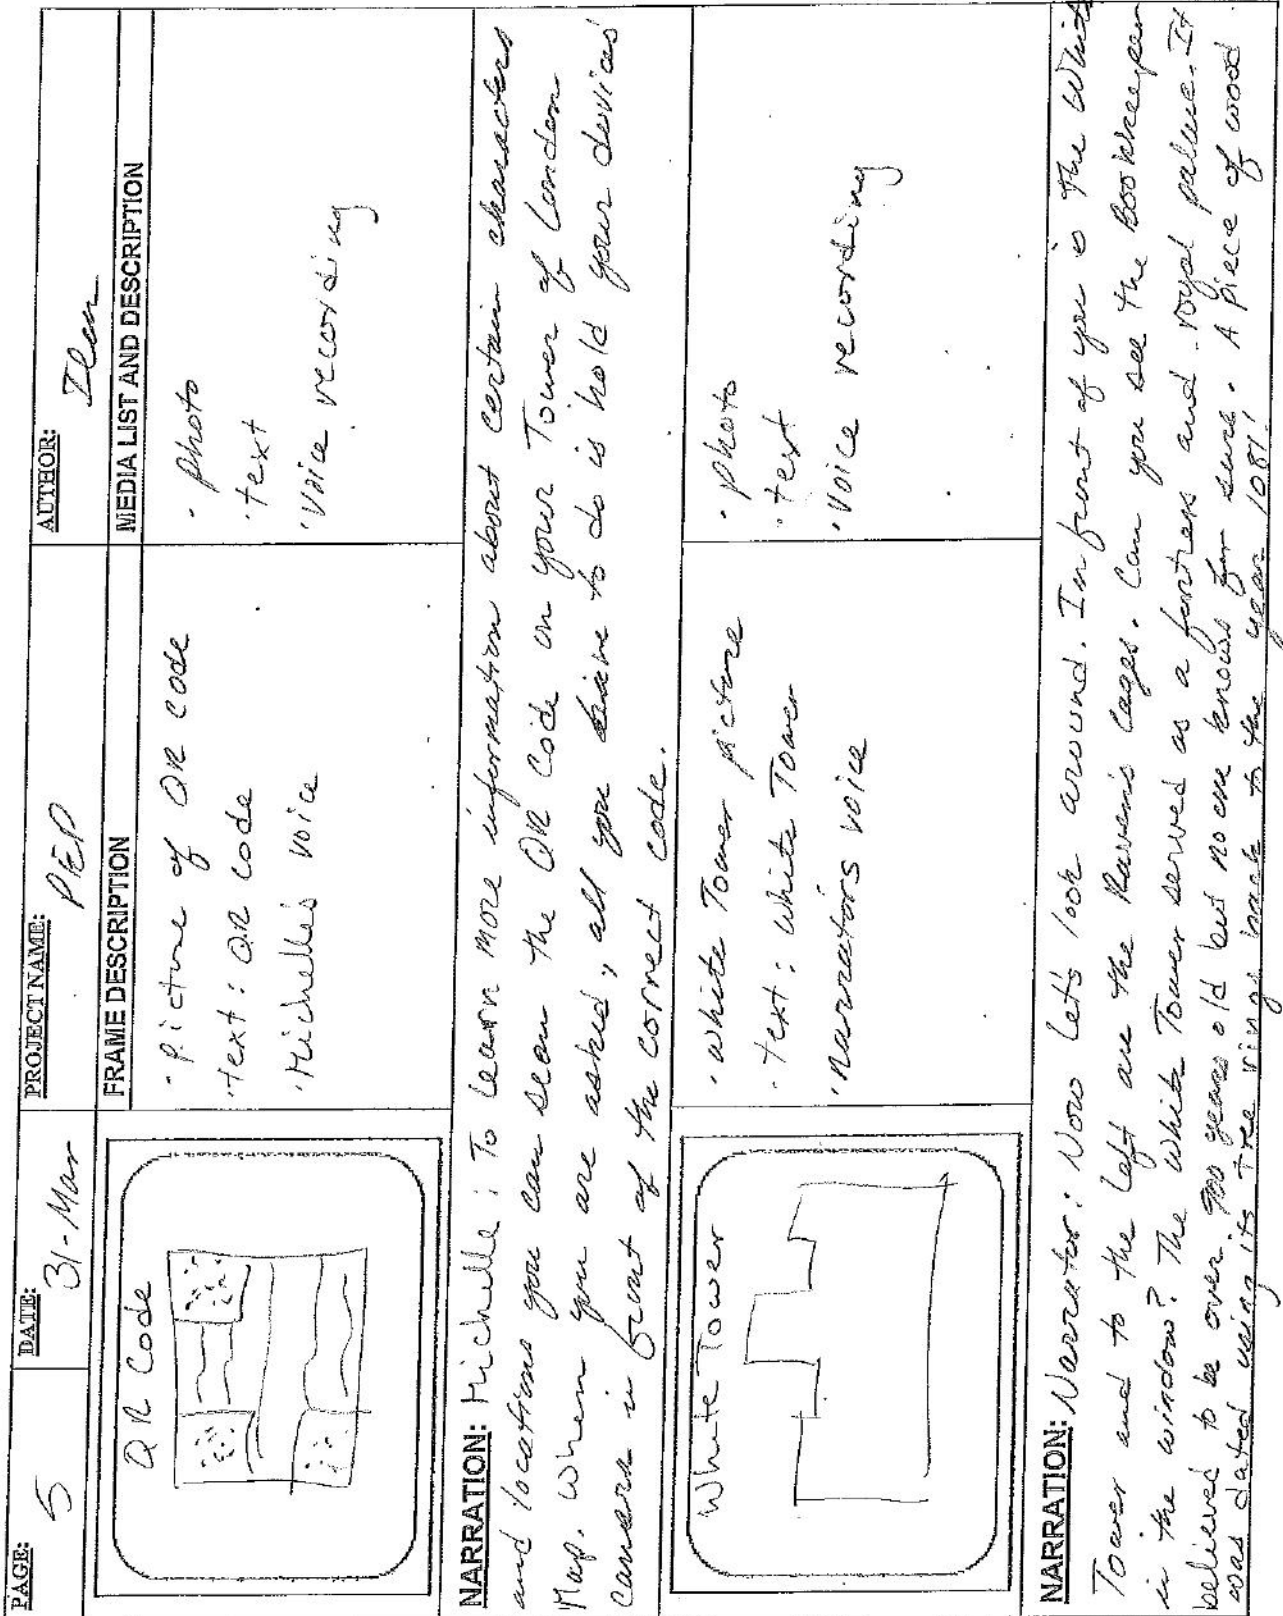 PAGE: 5
DATE: 31-Mar
PROJECT NAME: PEP
AUTHOR: Ilen
FRAME DESCRIPTION
MEDIA LIST AND DESCRIPTION
QR Code
· Picture of QR code
· text: QR code
· Michelles voice
· photo
· text
· voice recording
NARRATION: Michelle: To learn more information about certain characters
and locations you can scan the QR Code on your Tower of London
Map. When you are asked, all you have to do is hold your devices'
camera in front of the correct code.
White Tower
· White Tower picture
· text: White Tower
· Narrators voice
· photo
· text
· voice recording
NARRATION: Narrator: Now let's look around. In front of you is the White
Tower and to the left are the Raven's cages. Can you see the Bookkeeper
in the window? The White Tower served as a fortress and royal palace. It
believed to be over 900 years old but no one knows for sure. A piece of wood
was dated using its tree rings back to the year 1081!